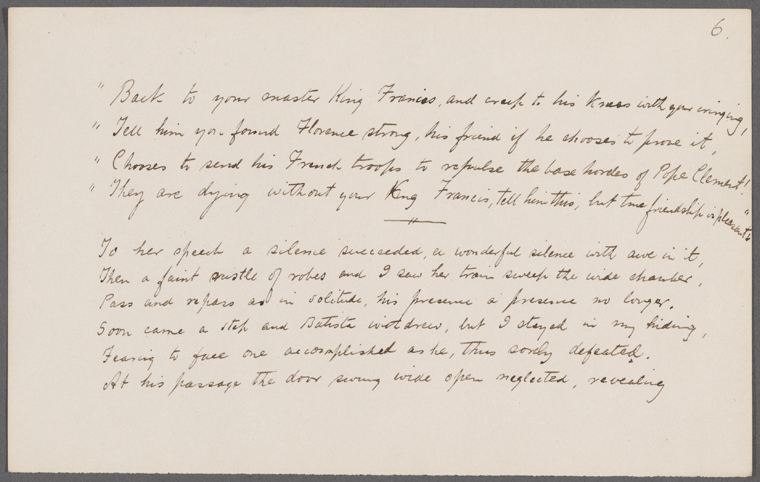 6.
" Back to your master King Francis, and creep to his knees with your cringing,
" Tell him you found Florence strong, his friend if he chooses to prove it,
" Chooses to send his French troops to repulse the base hordes of Pope Clement!
" They are dying without your King Francis, tell him this, but true friendship is pleasant."
To her speech a silence succeeded, a wonderful silence with awe in it,
Then a faint rustle of robes and I saw her train sweep the wide chamber,
Pass and repass as in solitude, his presence a presence no longer.
Soon came a step and Batista withdrew, but I stayed in my hiding,
Fearing to face one accomplished as he, thus sorely defeated.
At his passage the door swung wide open neglected, revealing